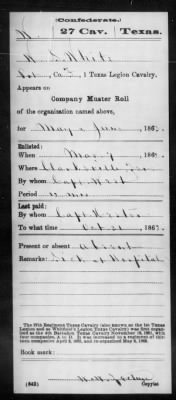 (Confederate.)
W 27 Cav. Texas.
W. S. White
Co. 1 Texas Legion Cavalry.
Appears on
Company Muster Roll
of the organization named above,
for May & June, 186
Enlisted:
When May, 186
Where Clarksville
By whom Capt.
Period 12 mos
Last paid:
By whom Capt
To what time Oct 31, 186
Present or absent Absent
Remarks: Sick at Hospital
The 27th Regiment Texas Cavalry (also known as the 1st Texas
Legion and as Whitfield's Legion Texas Cavalry) was first organ-
ized as the 4th Battalion Texas Cavalry with
four companies, A to D. It was increased to a regiment of
companies April 2, 1862, and re-organized May 8, 1862.
Book mark:
(642) Copyist